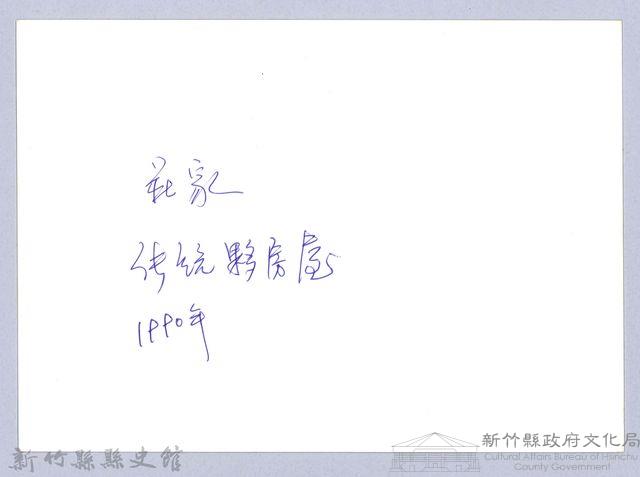 莊家
传统夥房屋
1990年
新竹縣縣史館
新竹縣政府文化局
Cultural Affairs Bureau of Hsinchu
County Government